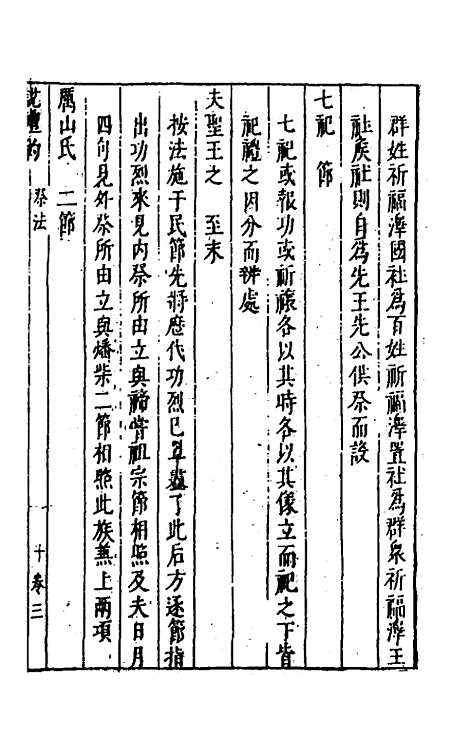 群姓祈福澤國社為百姓祈福澤置社為群衆祈福澤王
社侯社則自為先王先公供祭而設
七祀　節
七祀或報功或祈禳各以其時各以其像立而祀之下皆
祀禮之因分而辨處
夫聖王之　至末
按法施于民節先將歷代功烈已平叢了此后方逐節指
出功烈來見内祭所由立與禘嘗祖宗節相照及夫日月
四句見外祭所由立與燔柴二節相照此族兼上兩項
厲山氏　二節
說禮約　祭法　十　卷三